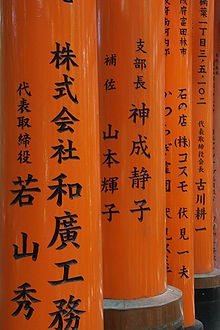 葉一丁目三,五,一〇二
代表取締役会長 古川耕一
府富田林市
石の店(株)コスモ 伏見一夫
支部長 神成静子
補佐 山本輝子
株式会社和廣工務
代表取締役 若山秀